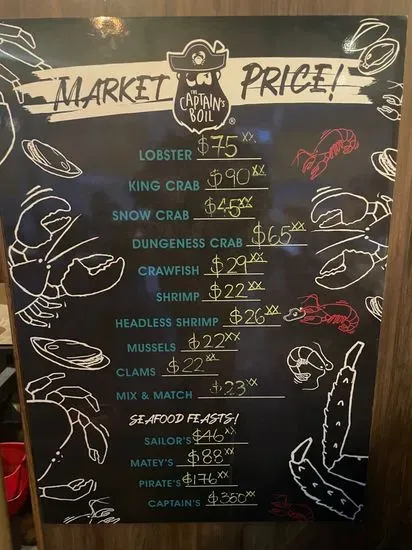 MARKET PRICE!
THE
CAPTAIN'S
BOIL
®
LOBSTER $75xx
KING CRAB $90xx
SNOW CRAB $45xx
DUNGENESS CRAB $65xx
CRAWFISH $29xx
SHRIMP $22xx
HEADLESS SHRIMP $26xx
MUSSELS $22xx
CLAMS $22xx
MIX & MATCH $23xx
SEAFOOD FEASTS!
SAILOR'S $46xx
MATEY'S $88xx
PIRATE'S $176xx
CAPTAIN'S $350xx